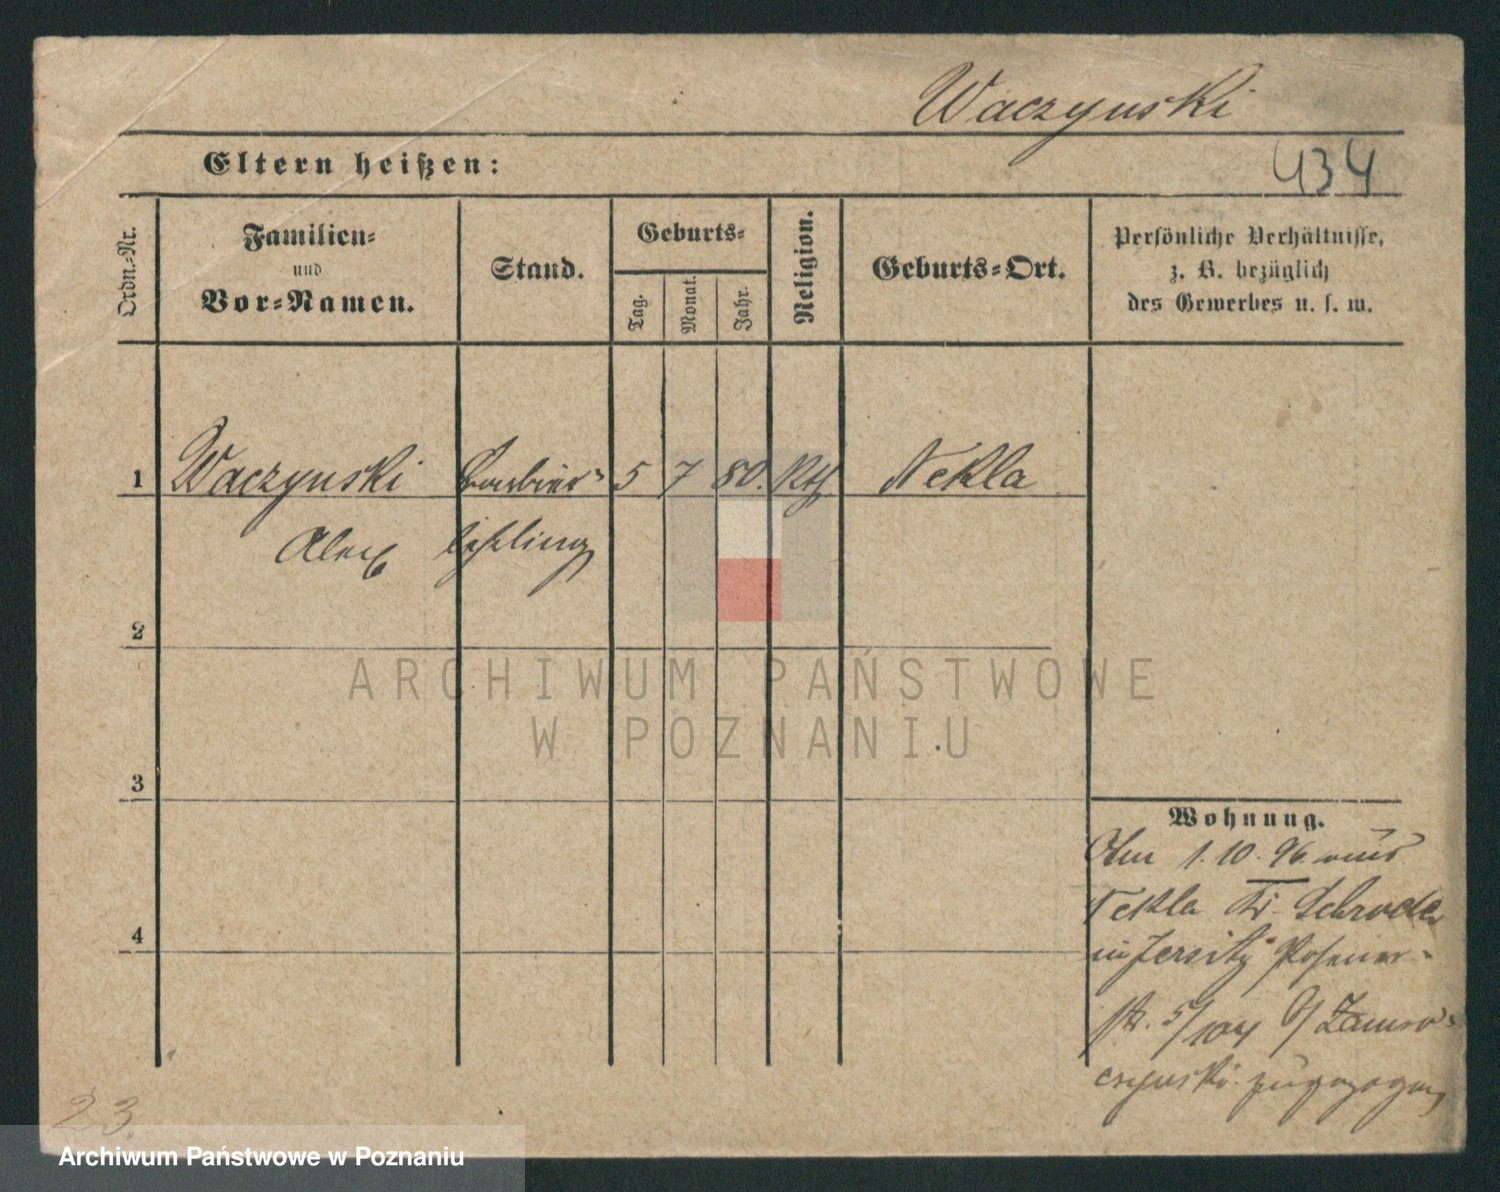 Waczynski
Eltern heißen:
434
Ordn.-Nr.
Familien-
und
Vor-Namen.
Stand.
Geburts-
Tag.
Monat.
Jahr.
Religion.
Geburts-Ort.
Persönliche Verhältnisse,
z. B. bezüglich
des Gewerbes u. s. w.
1
Waczynski
Barbier-
5
7
80.
Kth
Nekla
Alex
lehrling
2
ARCHIWUM PAŃSTWOWE
W POZNANIU
3
Wohnung.
Am 1. 10. 96. aus
Nekla Kr. Schroda
in Jersitz Posener-
str. 5/104 b/
zugezogen
4
23.
Archiwum Państwowe w Poznaniu